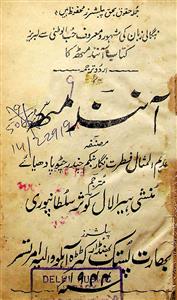 جملہ حقوق بحق پبلشرز محفوظ ہیں
بنگالی زبان کی مشہور و معروف حب الوطنی سے لبریز
کتاب آنند مٹھ کا
اردو ترجمہ
آنند مٹھ
مصنفہ
عدیم المثال فطرت نگار بنکم چندر چٹوپادھیائے
مترجم
منشی ہیرا لال کوثر سلطانپوری
پبلشرز
بھارت پستک بھنڈار کٹڑہ آہلووالیہ امرتسر
DELHI